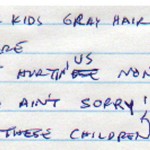 KIDS GRAY HAIR
HURTIN' US NON
AIN'T SORRY!
THESE CHILDREN